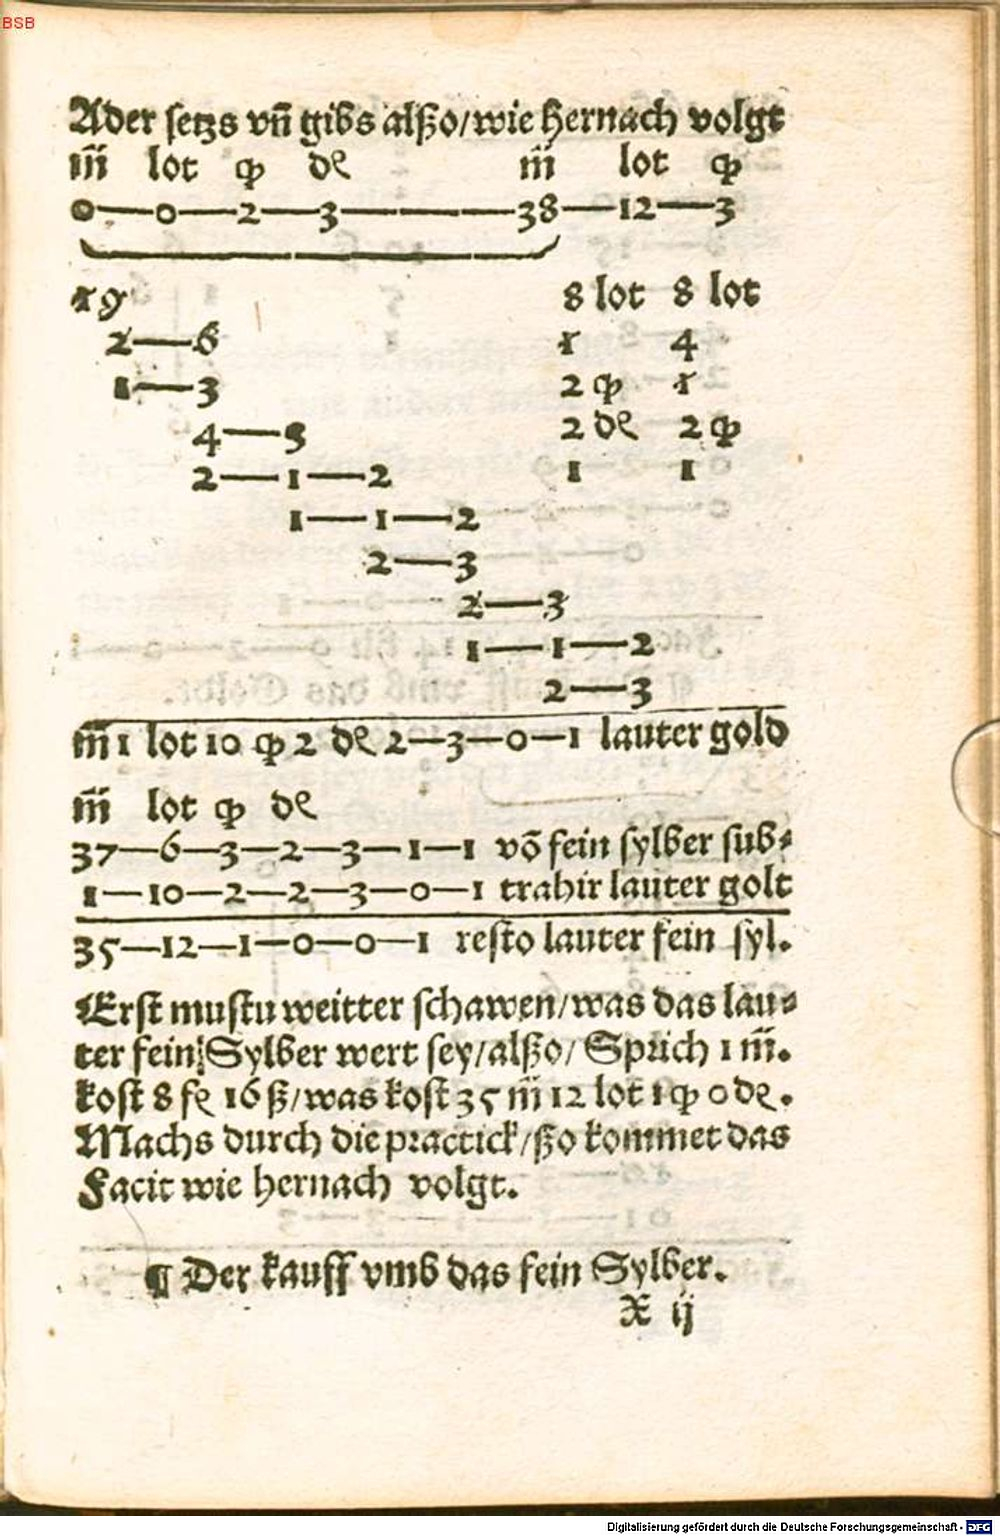 BSB
Ader setzs vñ gibs alßo/wie hernach volgt
m̃ lot qͥ de m̃ lot qͥ
0—0—2—3———38—12—3
19 8 lot 8 lot
2—6 1 4
1—3 2 qͥ 1
4—5 2 de 2 qͥ
2—1—2 1 1
1—1—2
2—3
2—3
1—1—2
2—3
m̃ 1 lot 10 qͥ 2 de 2—3—0—1 lauter gold
m̃ lot qͥ de
37—6—3—2—3—1—1 võ fein sylber sub⸗
1—10—2—2—3—0—1 trahir lauter golt
35—12—1—0—0—1 resto lauter fein syl.
Erst mustu weitter schawen/was das lau⸗
ter fein Sylber wert sey/alßo/ Sprich 1 m̃.
kost 8 fe 16 ß/was kost 35 m̃ 12 lot 1 qͥ 0 de.
Machs durch die practick/ßo kommet das
Facit wie hernach volgt.
¶ Der kauff vmb das fein Sylber.
X ij
Digitalisierung gefördert durch die Deutsche Forschungsgemeinschaft - DFG